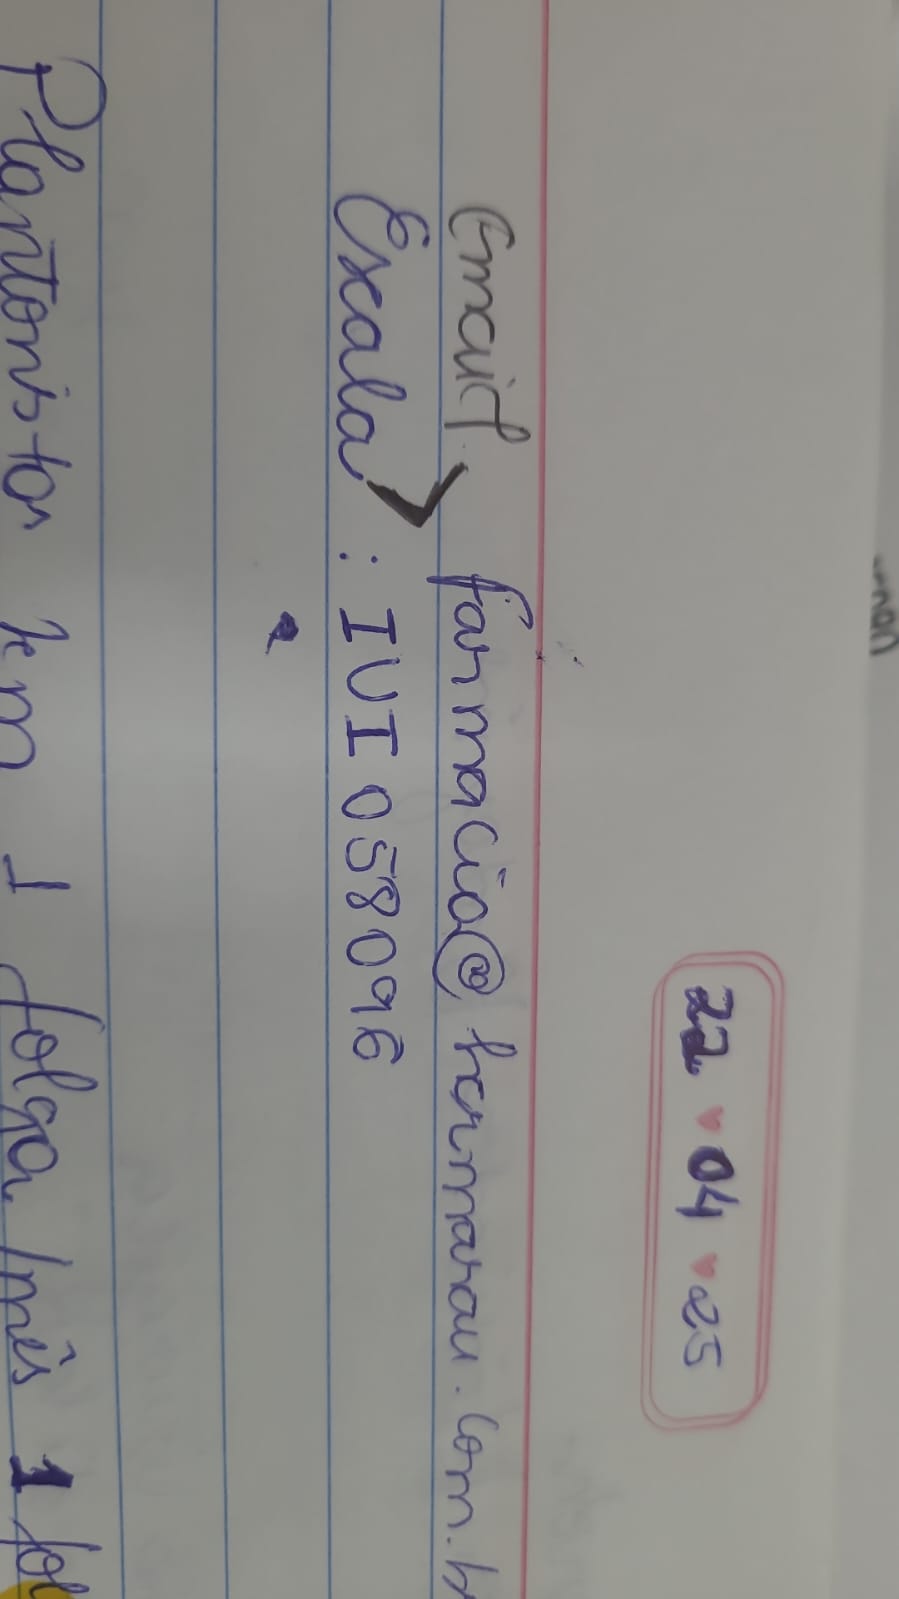 22 ♥ 04 ♥ 25
Email farmacia@hcrmarau.com.br
Escala : IVI058096
Plantonistas tem 1 folga/mês 1 fol